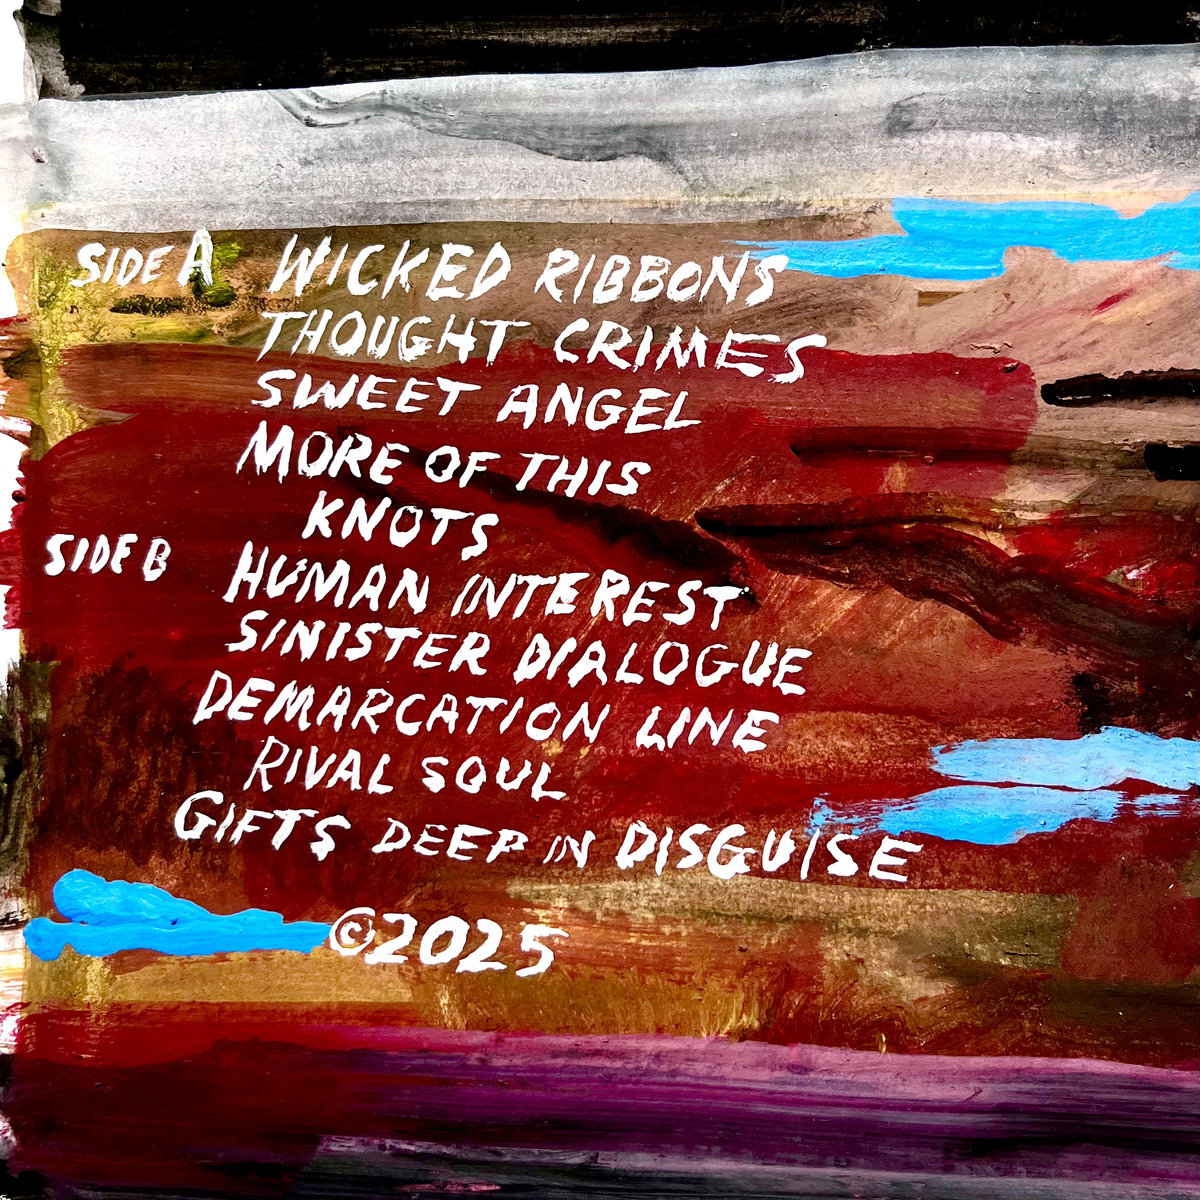 SIDE A WICKED RIBBONS
THOUGHT CRIMES
SWEET ANGEL
MORE OF THIS
KNOTS
SIDE B HUMAN INTEREST
SINISTER DIALOGUE
DEMARCATION LINE
RIVAL SOUL
GIFTS DEEP IN DISGUISE
©2025